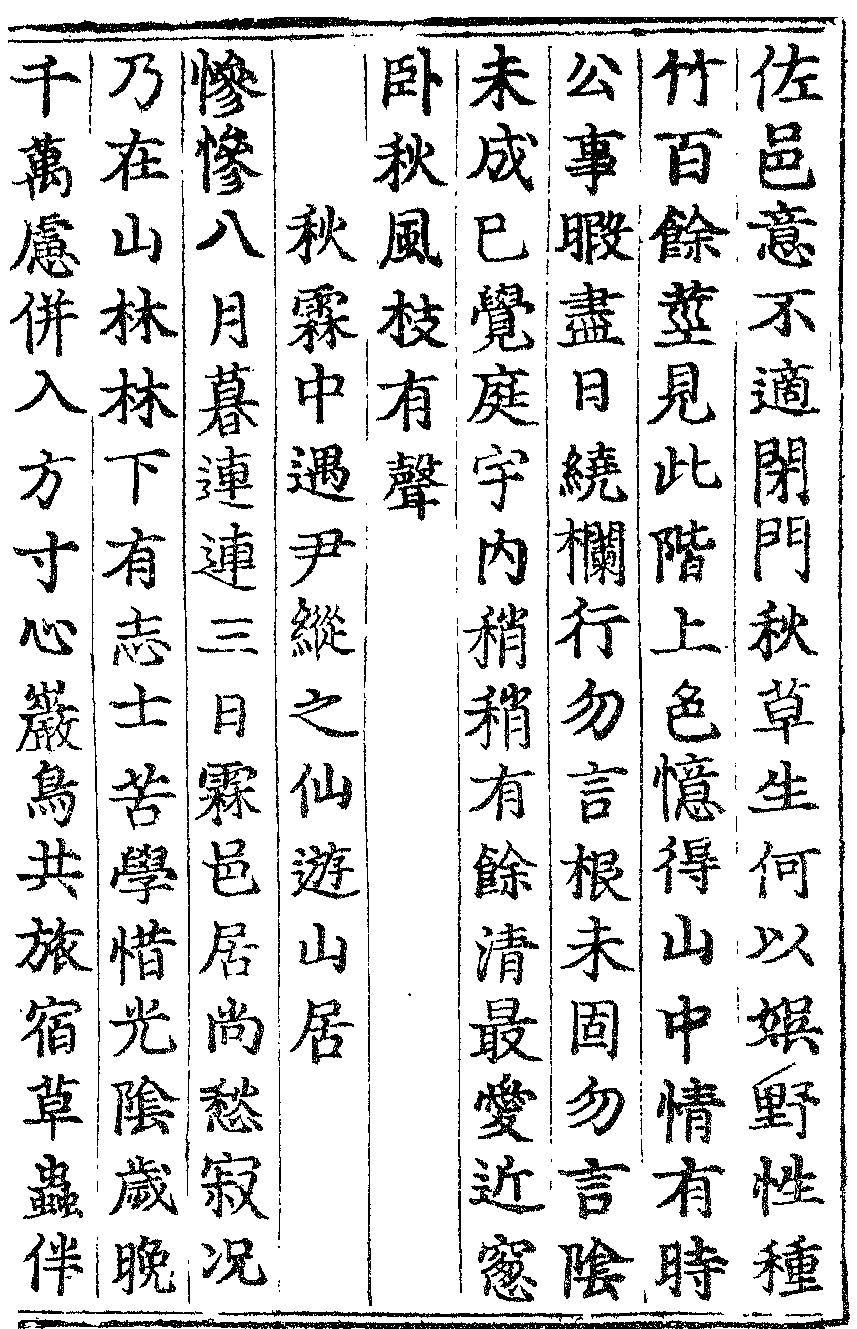 佐邑意不適閉門秋草生何以娯野性種
竹百餘莖見此階上色憶得山中情有時
公事暇盡日繞欄行勿言根未固勿言陰
未成已覺庭宇内稍稍有餘清最愛近窓
卧秋風枝有聲
秋霖中遇尹縱之仙遊山居
慘慘八月暮連連三日霖邑居尚愁寂况
乃在山林林下有志士苦學惜光陰歳晚
千萬慮併入方寸心巖鳥共旅宿草蟲伴